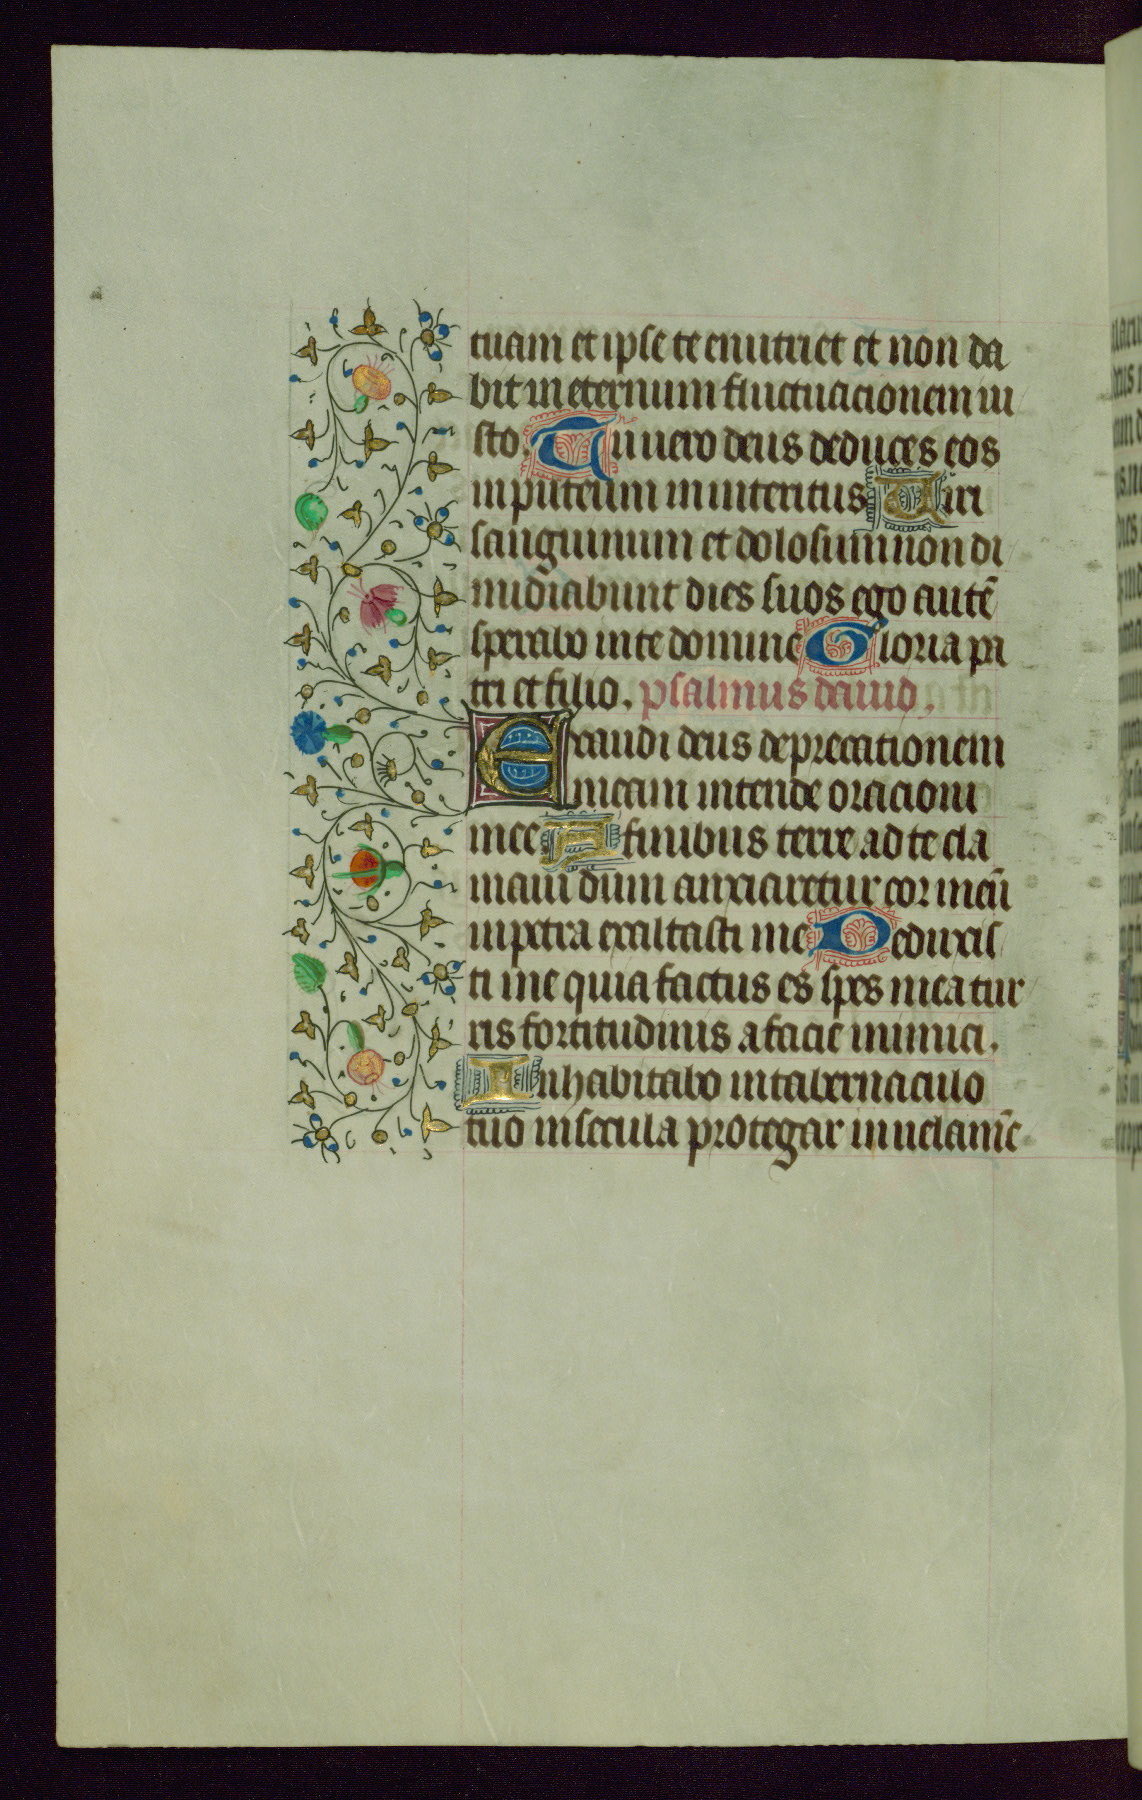 tuam et ipse te enutriet et non da
bit in eternum fluctuacionem iu
sto. Tu uero deus deduces eos
in puteum in interitus Uiri
sanguinum et dolosum non di
midiabunt dies suos ego autē
sperabo in te domine Gloria pa
tri et filio. psalmus dauid.
Exaudi deus deprecationem
meam intende oracioni
mee A finibus terre ad te cla
maui dum anxiaretur cor meū
in petra exaltasti me Deduxis
ti me quia factus es spes mea tur
ris fortitudinis a facie inimici.
Inhabitabo in tabernaculo
tuo in secula protegar in uelamīe